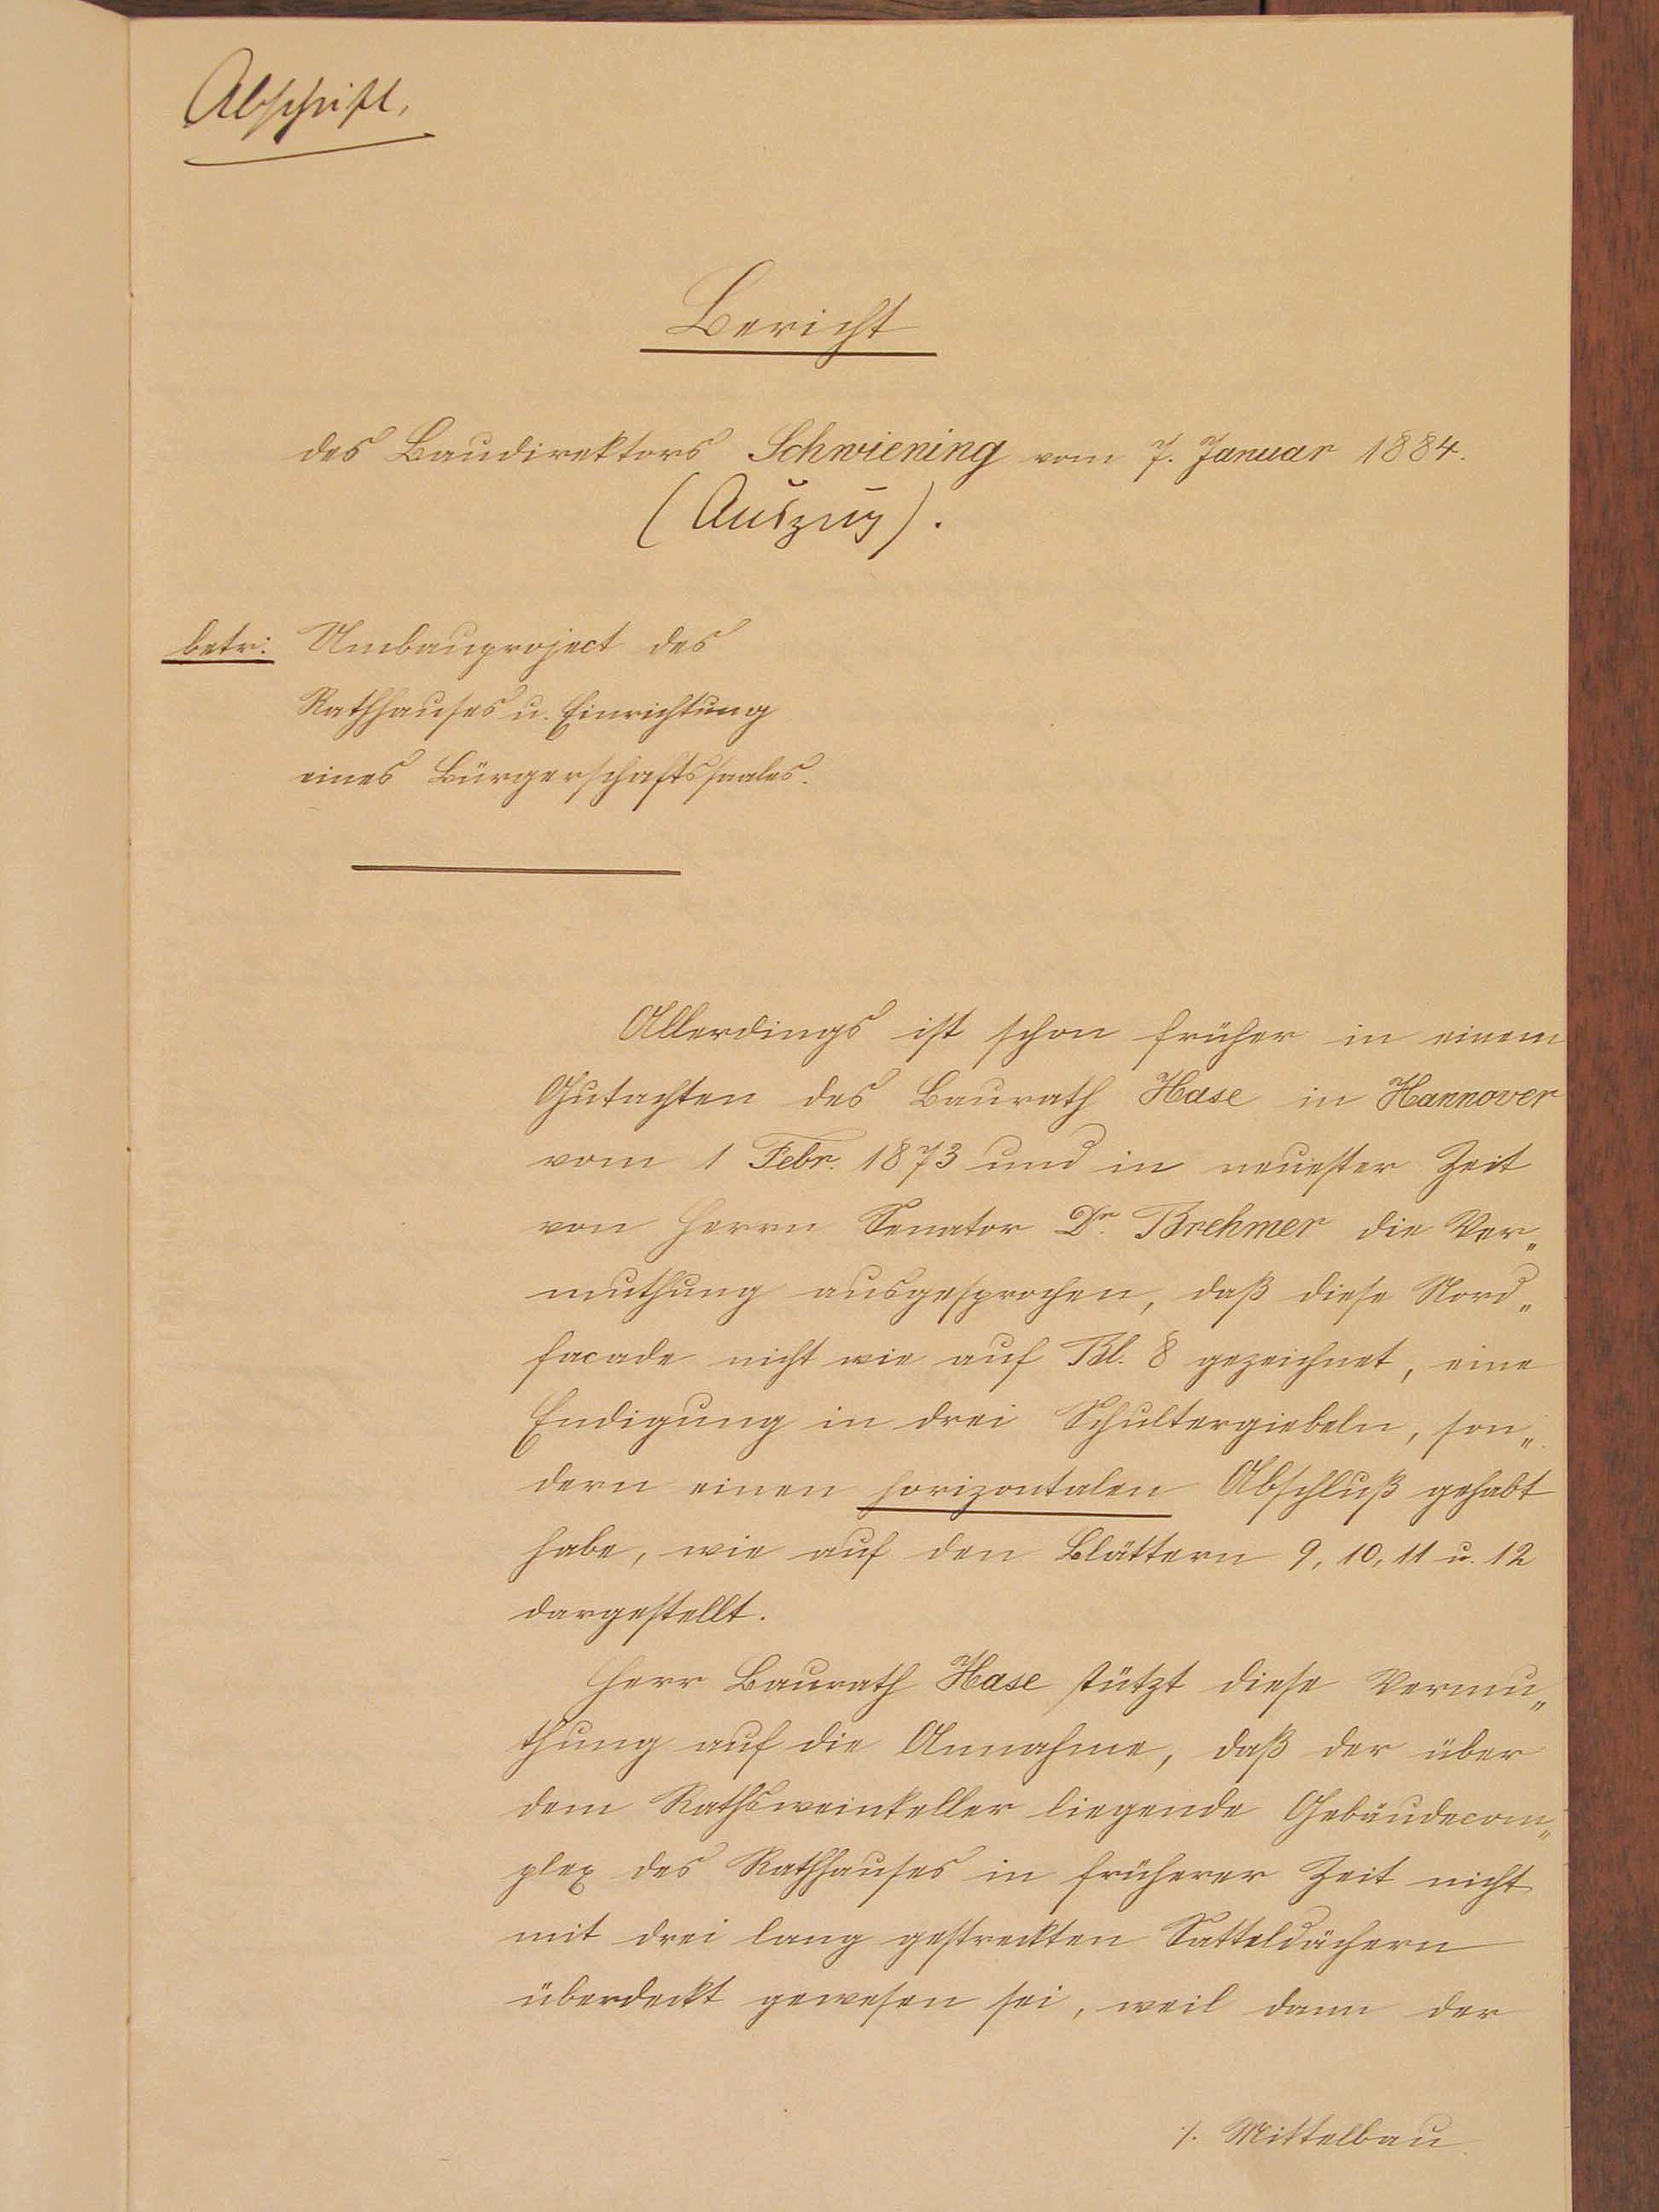 Abschrift.
Bericht
des Baudirektors Schwiening vom 7. Januar 1884.
(Auszug).
betr: Umbauproject des
Rathhauses u. Einrichtung
eines Bürgerschaftssaales.
Allerdings ist schon früher in einem
Gutachten des Baurath Hase in Hannover
vom 1 Febr. 1873 und in neuester Zeit
von Herrn Senator Dr. Brehmer die Ver„
muthung ausgesprochen, daß diese Nord„
facade nicht wie auf Bl. 8 gezeichnet, eine
Endigung in drei Schultergiebeln, son„
dern einen horizontalen Abschluß gehabt
habe, wie auf den Blättern 9, 10, 11 u. 12
dargestellt.
Herr Baurath Hase stützt diese Vermu„
thung auf die Annahme, daß der über
dem Rathsweinkeller liegende Gebäudecom„
plex des Rathhauses in früherer Zeit nicht
mit drei lang gestreckten Satteldächern
überdeckt gewesen sei, weil dann der
./. Mittelbau